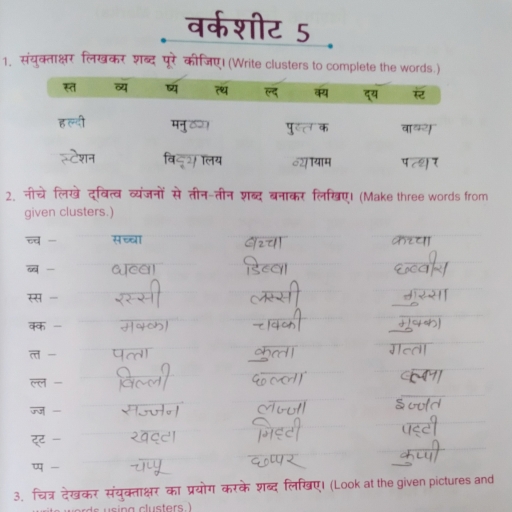 वर्कशीट 5
1. संयुक्ताक्षर लिखकर शब्द पूरे कीजिए। (Write clusters to complete the words.)
स्त व्य ष्य त्थ ल्द क्य द्य स्ट
हल्दी मनुष्य पुस्तक वाक्य
स्टेशन विद्यालय व्यायाम पत्थर
2. नीचे लिखे द्वित्व व्यंजनों से तीन-तीन शब्द बनाकर लिखिए। (Make three words from
given clusters.)
च्च – सच्चा बच्चा कच्चा
ब्ब – धब्बा डिब्बा छब्बीस
स्स – रस्सी लस्सी गुस्सा
क्क – मक्का चक्की मुक्का
त्त – पत्ता कुत्ता गत्ता
ल्ल – बिल्ली छल्ला
ज्ज – सज्जन लज्जा इज्जत
ट्ट – खट्टा मिट्टी पट्टी
प्प – चप्पू छप्पर कुप्पी
3. चित्र देखकर संयुक्ताक्षर का प्रयोग करके शब्द लिखिए। (Look at the given pictures and
write words using clusters.)